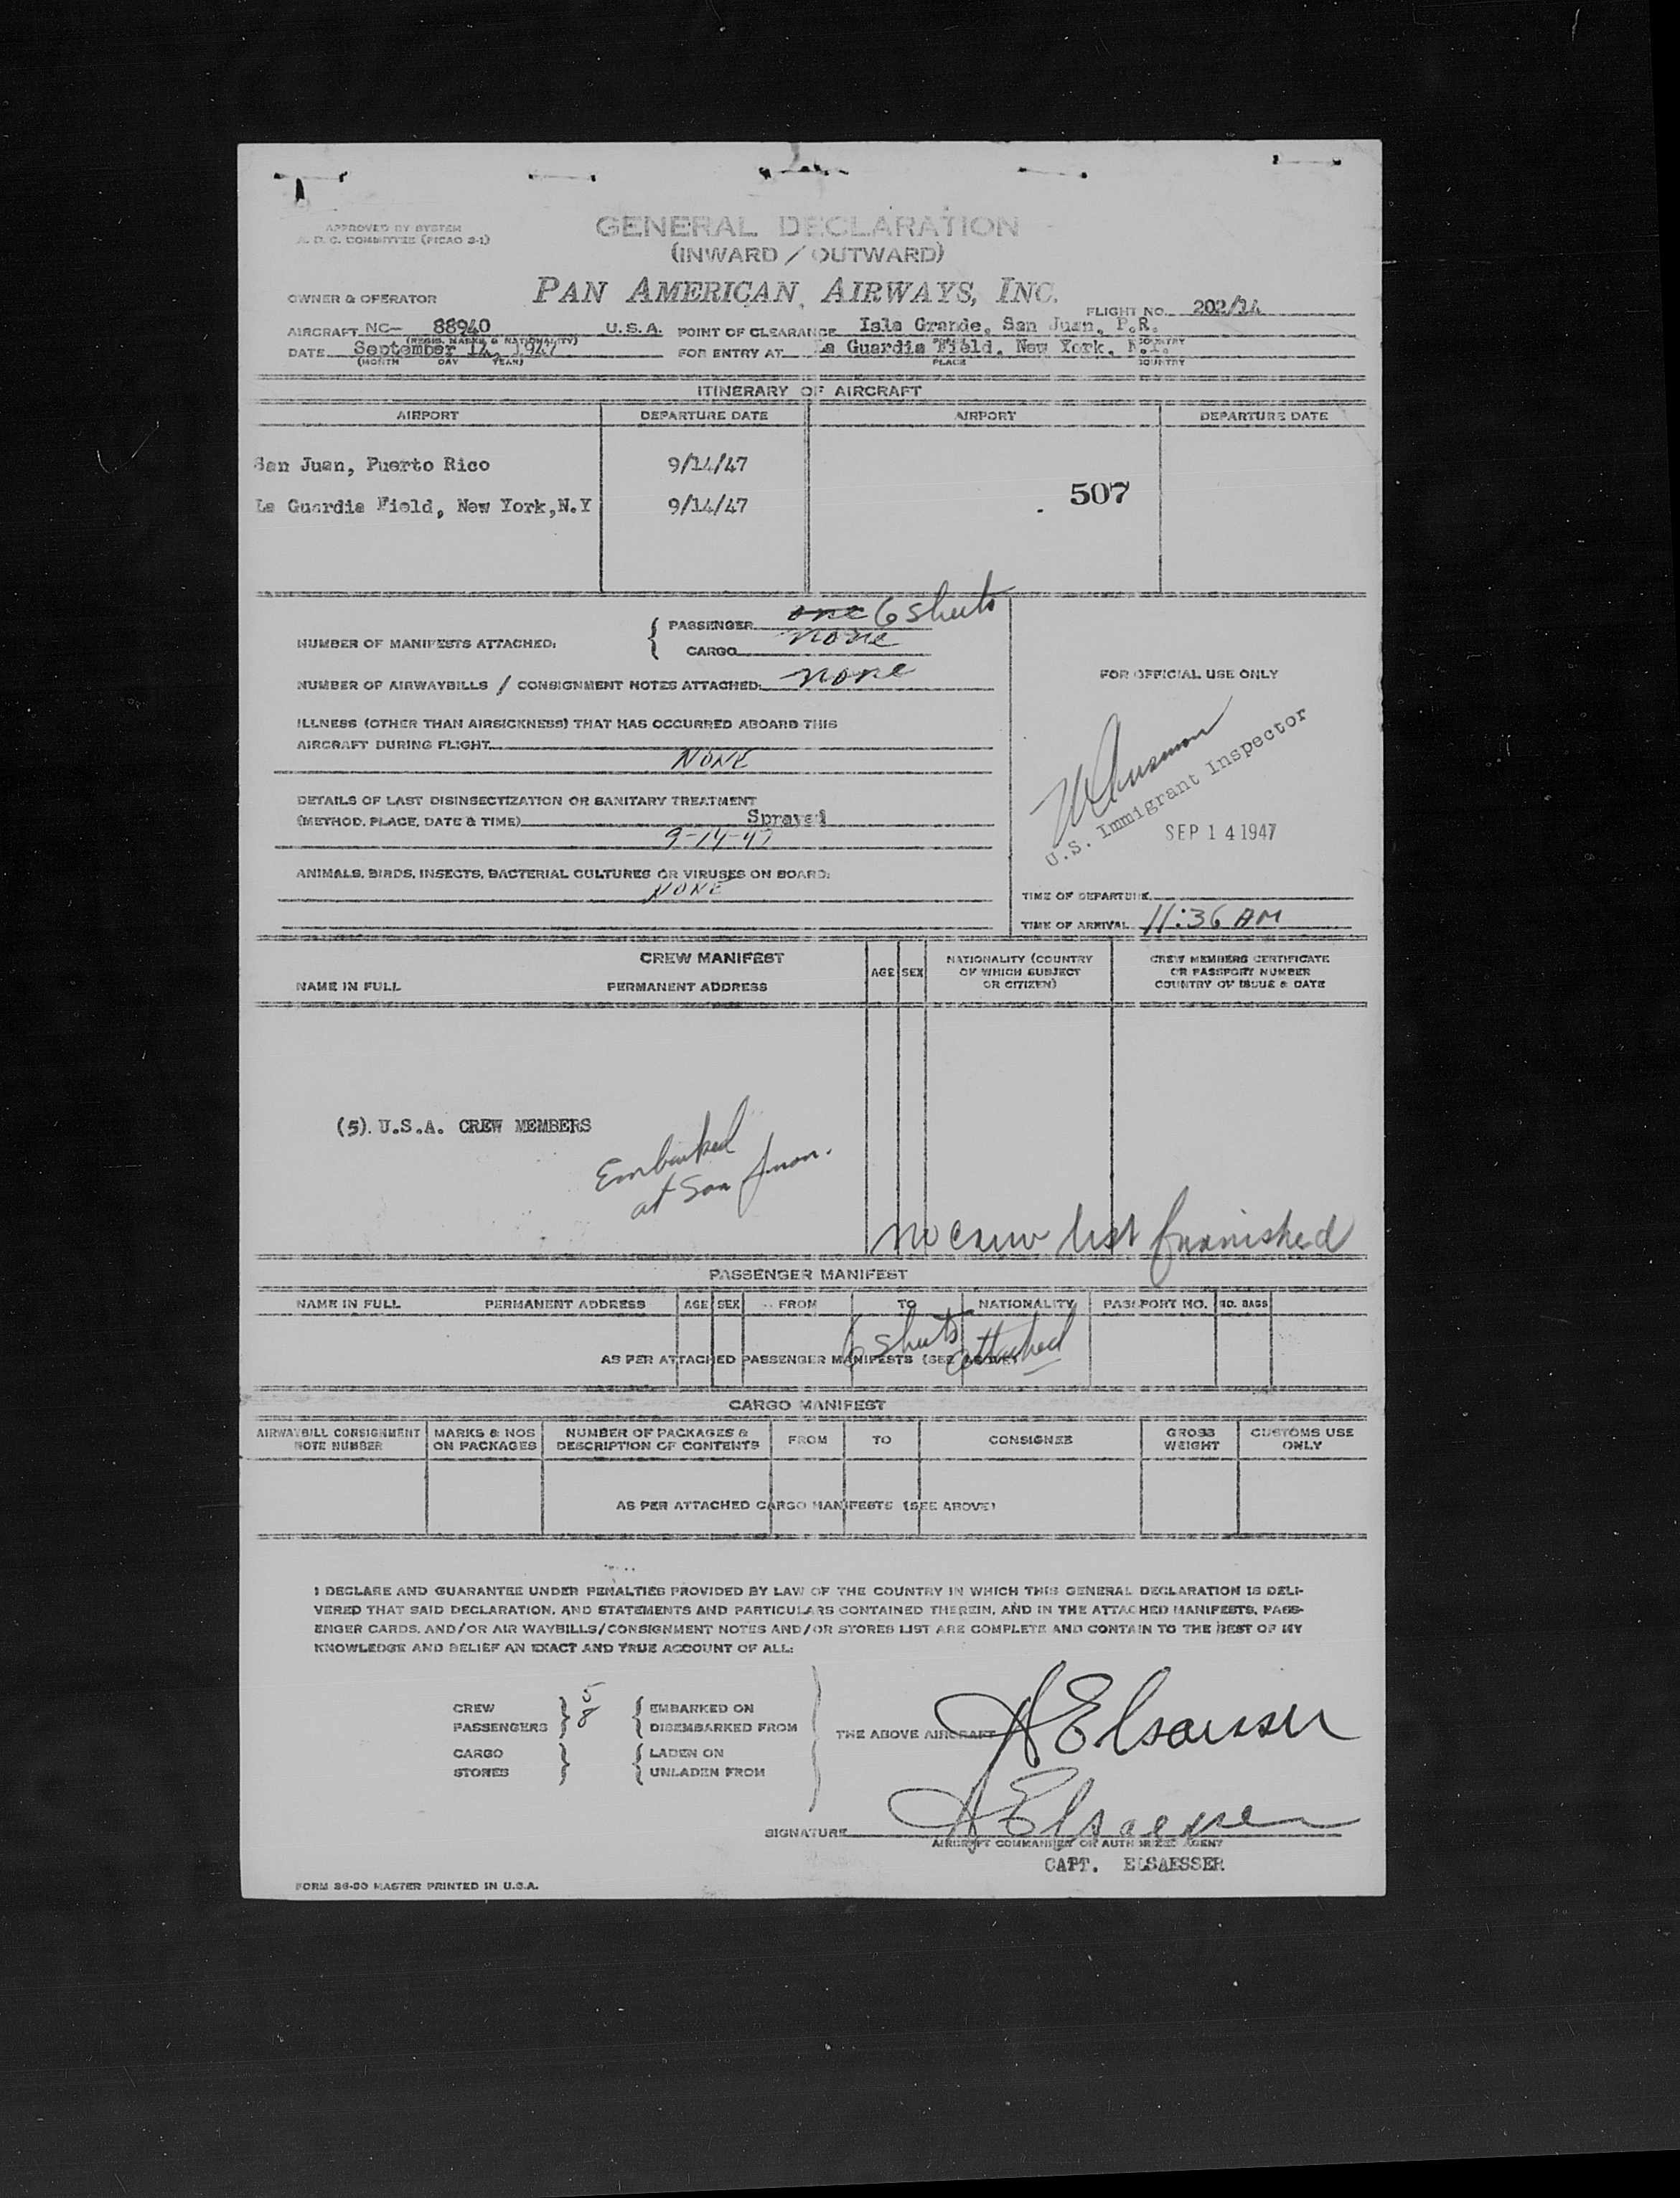 APPROVED BY SYSTEM
A. D. C. COMMITTEE (PICAO 2-1)
GENERAL DECLARATION
(INWARD / OUTWARD)
OWNER & OPERATOR PAN AMERICAN AIRWAYS, INC.
FLIGHT NO. 202/14
AIRCRAFT NC- 88940 U.S.A. POINT OF CLEARANCE Isla Grande, San Juan, P.R.
(REGIS. MARKS & NATIONALITY) PLACE COUNTRY
DATE September 14, 1947 FOR ENTRY AT La Guardia Field, New York, N.Y.
(MONTH DAY YEAR) PLACE COUNTRY
ITINERARY OF AIRCRAFT
AIRPORT DEPARTURE DATE AIRPORT DEPARTURE DATE
San Juan, Puerto Rico 9/14/47
507
La Guardia Field, New York,N.Y 9/14/47
NUMBER OF MANIFESTS ATTACHED: PASSENGER one 6 sheets
CARGO none
NUMBER OF AIRWAYBILLS / CONSIGNMENT NOTES ATTACHED: none
FOR OFFICIAL USE ONLY
ILLNESS (OTHER THAN AIRSICKNESS) THAT HAS OCCURRED ABOARD THIS
AIRCRAFT DURING FLIGHT
NONE
DETAILS OF LAST DISINSECTIZATION OR SANITARY TREATMENT
(METHOD, PLACE, DATE & TIME) Sprayed
9-14-47
U.S. Immigrant Inspector
SEP 14 1947
ANIMALS, BIRDS, INSECTS, BACTERIAL CULTURES OR VIRUSES ON BOARD:
NONE
TIME OF DEPARTURE
TIME OF ARRIVAL 11:36 AM
CREW MANIFEST
NAME IN FULL PERMANENT ADDRESS AGE SEX NATIONALITY (COUNTRY OF WHICH SUBJECT OR CITIZEN) CREW MEMBERS CERTIFICATE OR PASSPORT NUMBER COUNTRY OF ISSUE & DATE
(5) U.S.A. CREW MEMBERS
Embarked
at San Juan.
no crew list furnished
PASSENGER MANIFEST
NAME IN FULL PERMANENT ADDRESS AGE SEX FROM TO NATIONALITY PASSPORT NO. NO. BAGS
6 sheets attached
AS PER ATTACHED PASSENGER MANIFESTS (SEE ABOVE)
CARGO MANIFEST
AIRWAYBILL CONSIGNMENT NOTE NUMBER MARKS & NOS ON PACKAGES NUMBER OF PACKAGES & DESCRIPTION OF CONTENTS FROM TO CONSIGNEE GROSS WEIGHT CUSTOMS USE ONLY
AS PER ATTACHED CARGO MANIFESTS (SEE ABOVE)
I DECLARE AND GUARANTEE UNDER PENALTIES PROVIDED BY LAW OF THE COUNTRY IN WHICH THIS GENERAL DECLARATION IS DELI-
VERED THAT SAID DECLARATION, AND STATEMENTS AND PARTICULARS CONTAINED THEREIN, AND IN THE ATTACHED MANIFESTS, PASS-
ENGER CARDS, AND/OR AIR WAYBILLS/CONSIGNMENT NOTES AND/OR STORES LIST ARE COMPLETE AND CONTAIN TO THE BEST OF MY
KNOWLEDGE AND BELIEF AN EXACT AND TRUE ACCOUNT OF ALL:
CREW 5 EMBARKED ON
PASSENGERS 8 DISEMBARKED FROM THE ABOVE AIRCRAFT A Elsaesser
CARGO LADEN ON
STORES UNLADEN FROM
SIGNATURE A Elsaesser
AIRCRAFT COMMANDER OR AUTHORIZED AGENT
CAPT. ELSAESSER
FORM 86-00 MASTER PRINTED IN U.S.A.